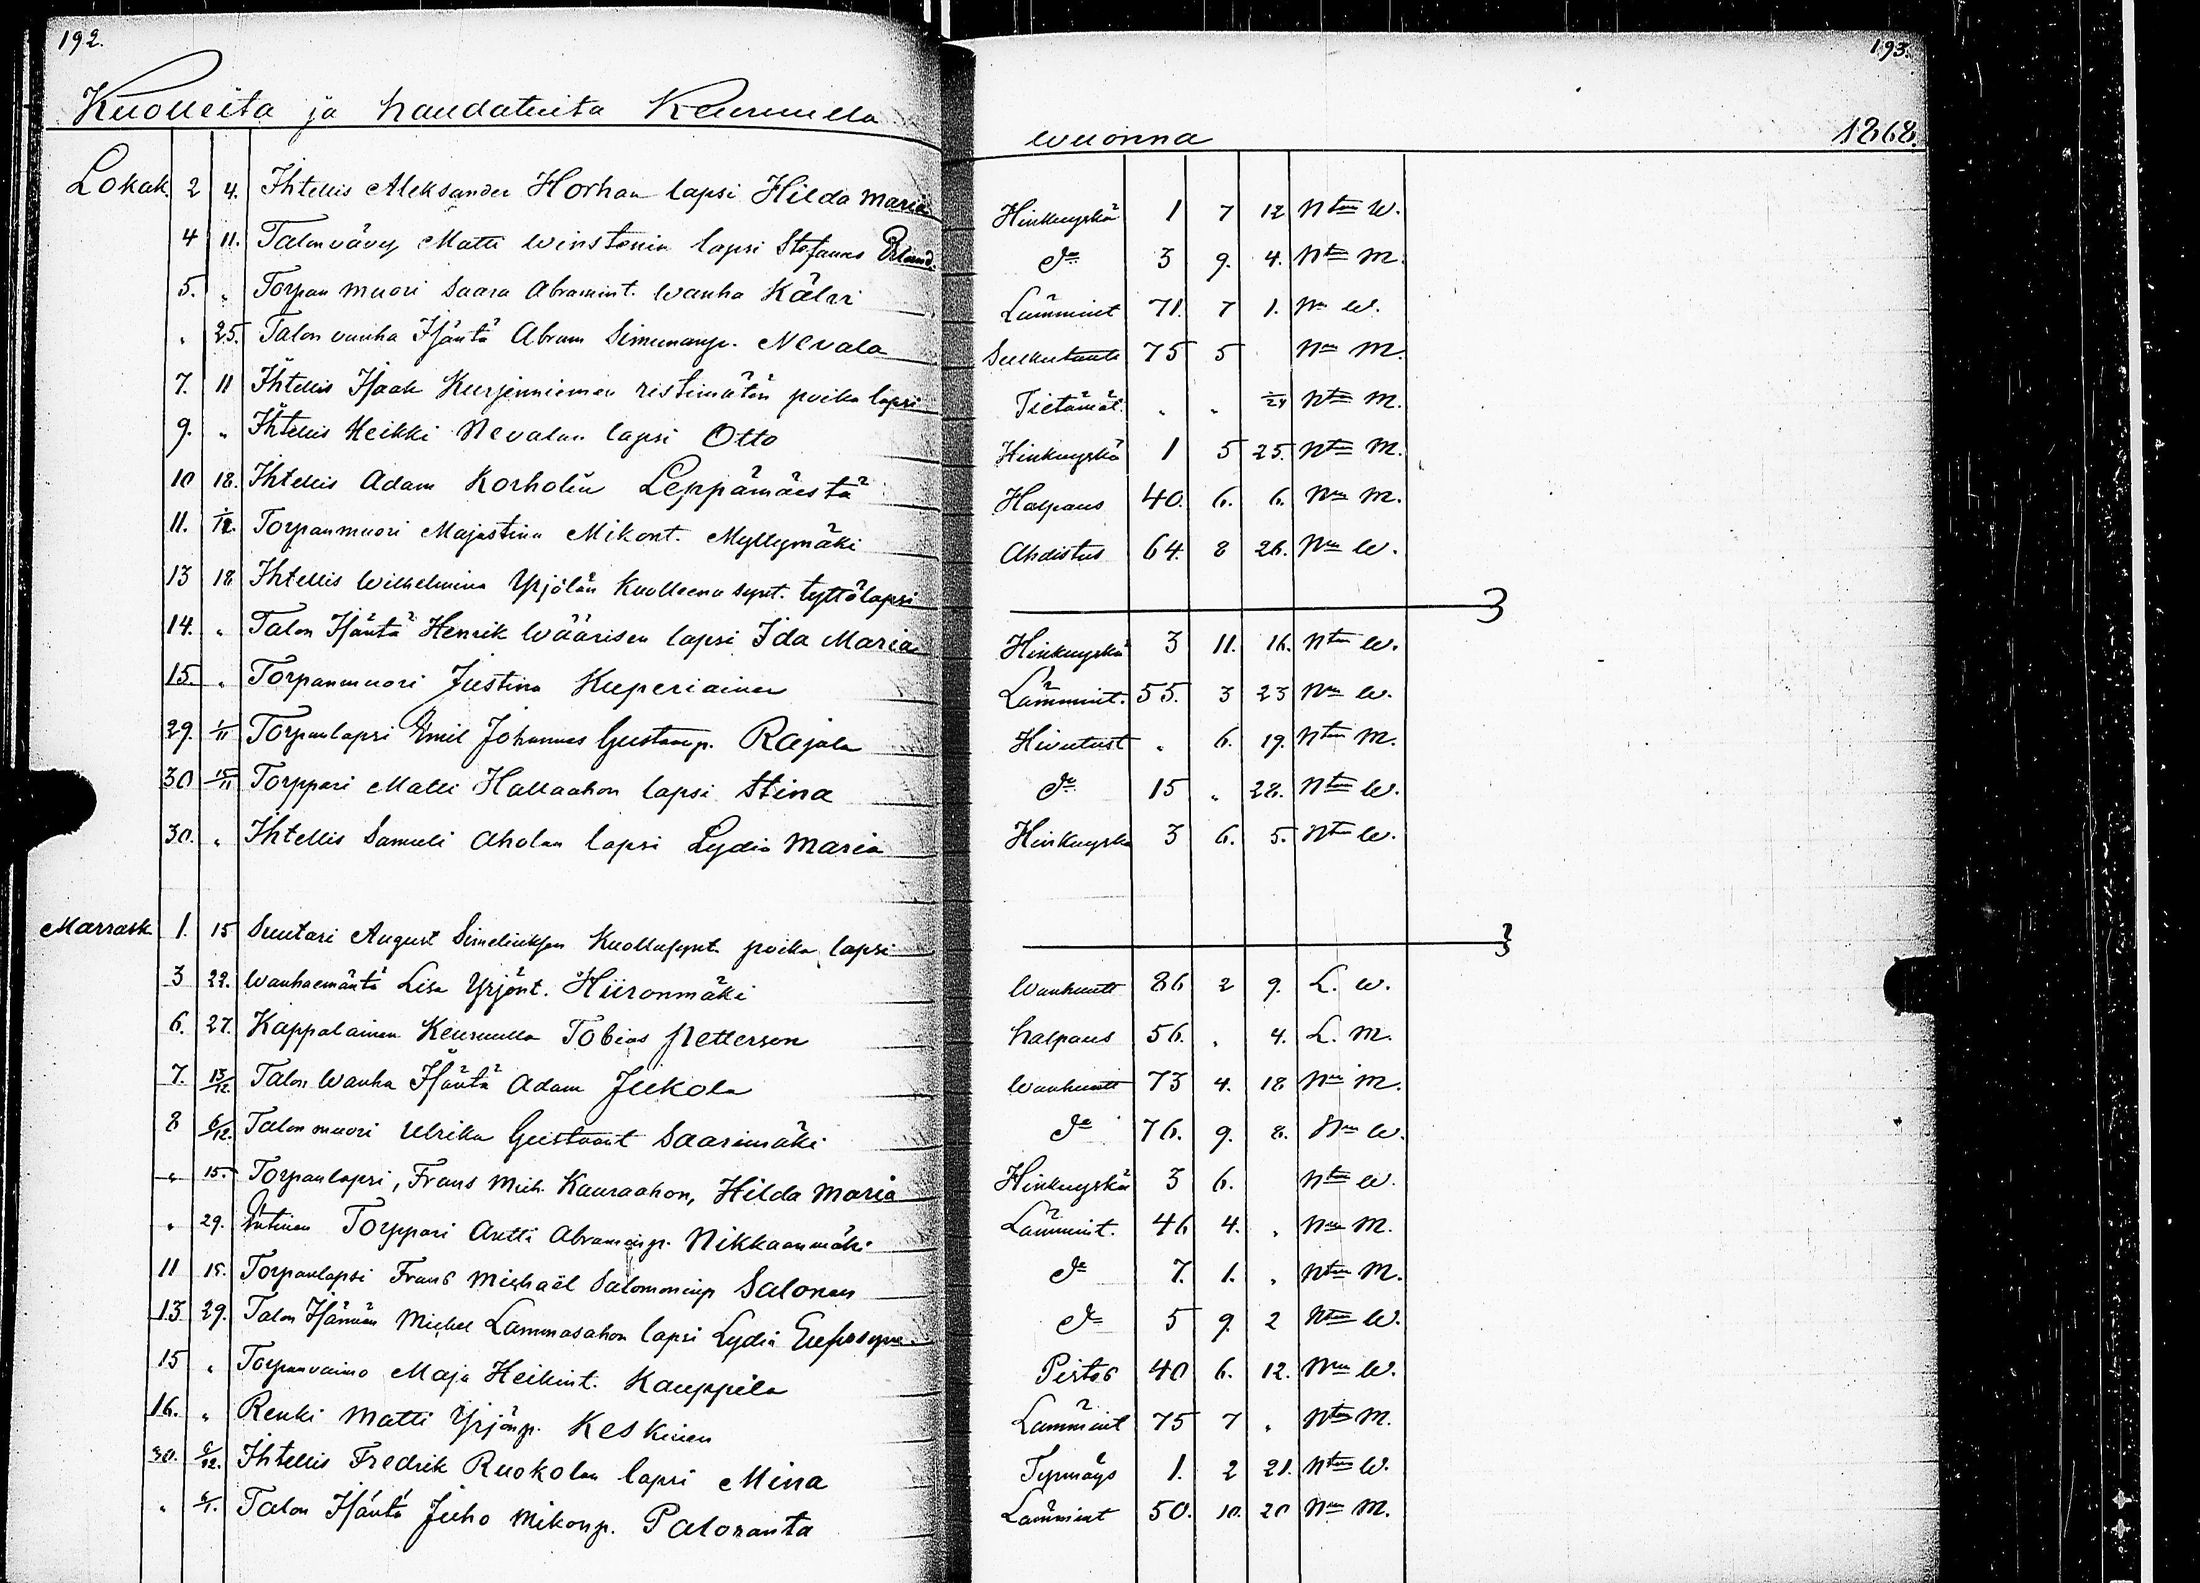 192.
193.
Kuolleita ja haudatuita Keuruulla wuonna 1868.
Lokak. 2 4. Ihtellis Aleksander Horhan lapsi Hilda Maria Hinkuyskä 1 7 12 Ntn W.
4 11. Talonvävy Matti Winstonin lapsi Stefanus Erland. do 3 9. 4. Ntn M.
5. " Torpan muori Saara Abramint. Wanha Kälvi Lämmint 71. 7 1. Nn W.
" 25. Talon vanha Isäntä Abram Simunanp. Nevala 75 5 Nn M.
7. 11 Ihtellis Isaak Kurjenniemen ristimätön poika lapsi Tietämät. " " 1/24 Ntn M.
9. " Ihtellis Heikki Nevalan lapsi Otto Hinkuyskä 1 5 25. Ntn M.
10 18. Ihtellis Adam Korholin Leppämäestä Halpaus 40. 6. 6. Nn M.
11. 1/12. Torpanmuori Majastina Mikont. Myllymäki Ahdistus 64. 8 26. Nn W.
13 18 Ihtellis Wilhelmina Yrjölän Kuolleena synt. tyttölapsi
14. " Talon Isäntä Henrik Wäärisen lapsi Ida Maria Hinkuyskä 3 11. 16. Ntn W.
15. " Torpanmuori Justina Kuperiainen Lämmint. 55. 3 23 Nn W.
29. 1/11 Torpanlapsi Emil Johannes Gustavp. Rajala Hivutust " 6. 19. Ntn M.
30 15/11 Torppari Matti Hallaahon lapsi Stina do 15 " 28. Ntn W.
30. " Ihtellis Samuli Aholan lapsi Lydia Maria Hinkuyskä 3 6. 5. Ntn W.
Marrask. 1. 15 Suutari August Simeliuksen Kuollusynt. poika lapsi
3 22. Wanhaemäntä Lisa Yrjönt. Hiironmäki Wanhuutt 86 2 9. L. W.
6. 27. Kappalainen Keuruulla Tobias Petterson halpaus 56. " 4. L. M.
7. 13/12. Talon Wanha Isäntä Adam Jukola Wanhuutt 73 4. 18 Nn M.
8 6/12. Talon muori Ulrika Gustavint Saarimäki do 76. 9. 8. Nn W.
" 15. Torpanlapsi, Frans Mich. Kauraahon, Hilda Maria Hinkuyskä 3 6. Ntn W.
" 29. Torppari Antti Abraminp. Nikkaanmäki Lämmint. 46 4. " Nn M.
11 15. Torpanlapsi Frans Michaël Salomoninp Salonen do 7. 1. " Ntn M.
13 29. Talon Isännän Michel Lammasahon lapsi Lydia do 5 9. 2 Ntn W.
15 " Torpanvaimo Maja Heikint. Kauppila Pistos 40 6. 12. Nn W.
16. " Renki Matti Yrjönp. Keskinen Lämmint 75 7 " Ntn M.
30. 6/12. Ihtellis Fredrik Ruokolan lapsi Mina 1. 2 21. Ntn W.
" 6/1. Talon Isäntä Juho Mikonp. Paloranta Lämmint 50. 10. 20 Nn M.